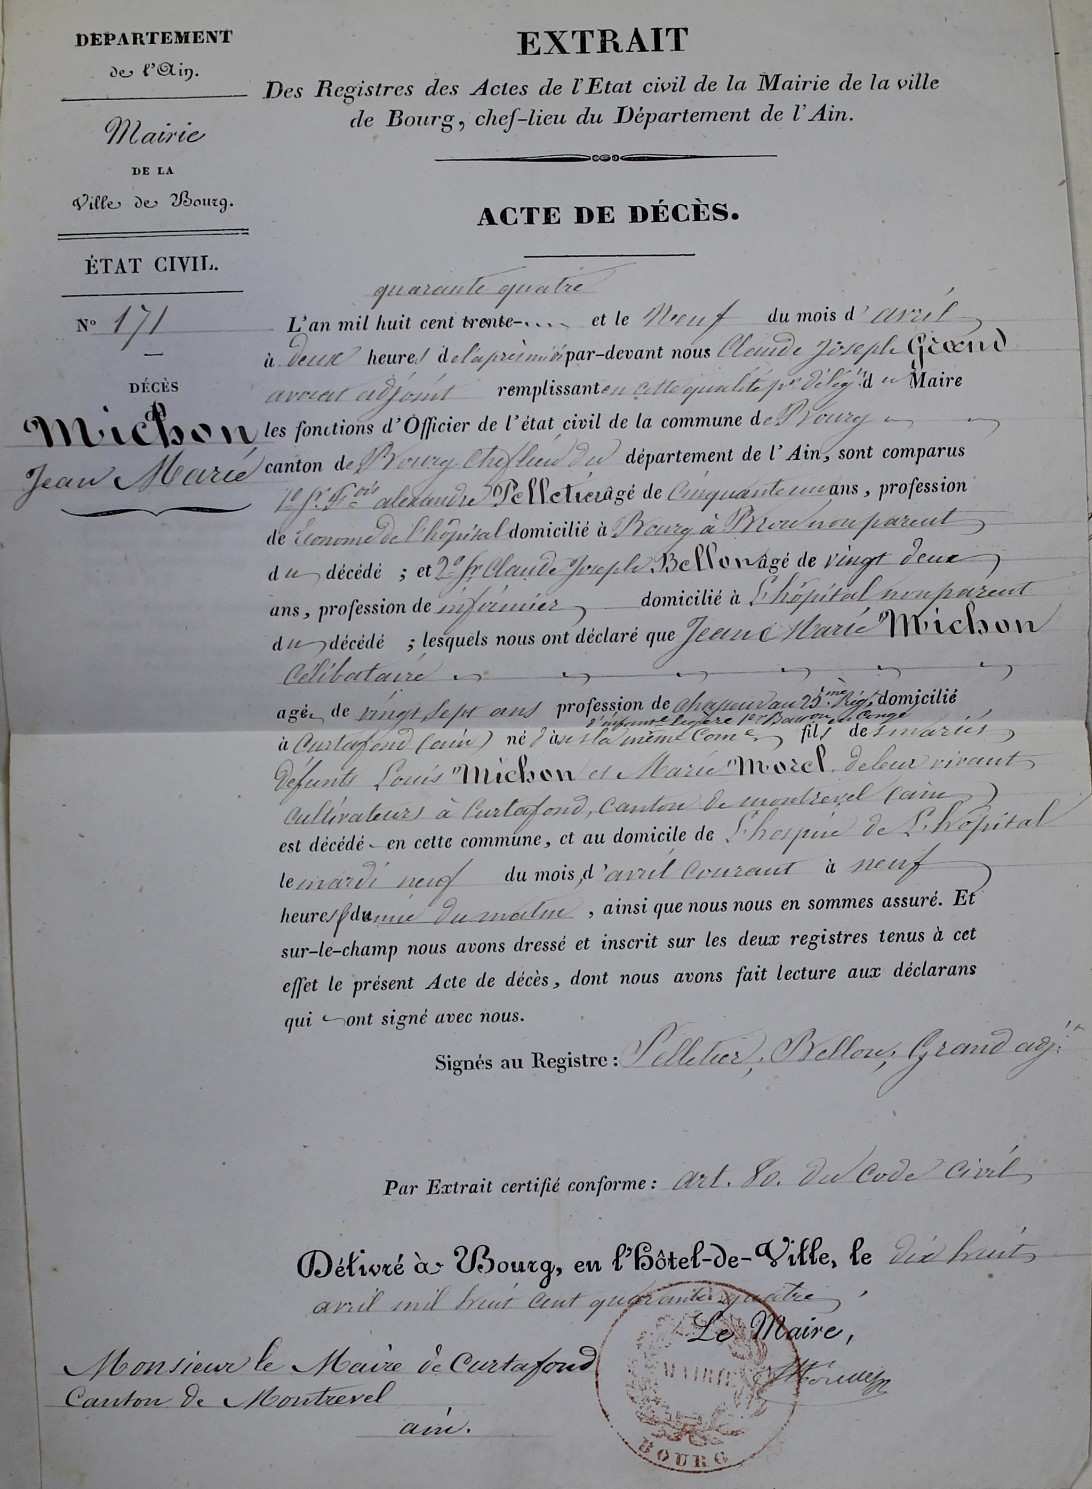 DEPARTEMENT
de l'Ain.
Mairie
DE LA
Ville de Bourg.
ÉTAT CIVIL.
N° 171
DÉCÈS
Michon
Jean Marie
EXTRAIT
Des Registres des Actes de l'Etat civil de la Mairie de la ville
de Bourg, chef-lieu du Département de l'Ain.
ACTE DE DÉCÈS.
quarante quatre
L'an mil huit cent trente-.... et le Neuf du mois d'avril
à deux heures de l'après midi par-devant nous Claude Joseph Grand
avocat adjoint remplissant en cette qualité pr délég.n du Maire
les fonctions d'Officier de l'état civil de la commune de Bourg
canton de Bourg chef lieu du département de l'Ain, sont comparus
1° Sr. Fcois alexandre Pelletier agé de cinquante un ans, profession
de Econome de l'hôpital domicilié à Bourg à Brou non parent
du décédé ; et 2° Sr Claude Joseph Bellon agé de vingt deux
ans, profession de infirmier domicilié à L'hôpital non parent
du décédé ; lesquels nous ont déclaré que Jean Marie Michon
Célibataire
agé de vingt sept ans profession de chasseur au 25ème Rég.t domicilié
d'infante legere 1er Baon en Congé
à Curtafond (ain) né dans la même Come fils des mariés
défunts Louis Michon et Marie Morel de leur vivant
cultivateurs à Curtafond, canton de montrevel (ain)
est décédé en cette commune, et au domicile de L'hospice de L'hôpital
le mardi neuf du mois d'avril courant à neuf
heures du matin, ainsi que nous nous en sommes assuré. Et
sur-le-champ nous avons dressé et inscrit sur les deux registres tenus à cet
effet le présent Acte de décès, dont nous avons fait lecture aux déclarans
qui ont signé avec nous.
Signés au Registre : Pelletier, Bellon, Grand adj.t
Par Extrait certifié conforme : art. 80. du Code Civil
Délivré à Bourg, en l'Hôtel-de-Ville, le dix huit
avril mil huit cent quarante quatre
Le Maire,
MAIRIE
BOURG
Monsieur le Maire de Curtafond
Canton de Montrevel
ain.